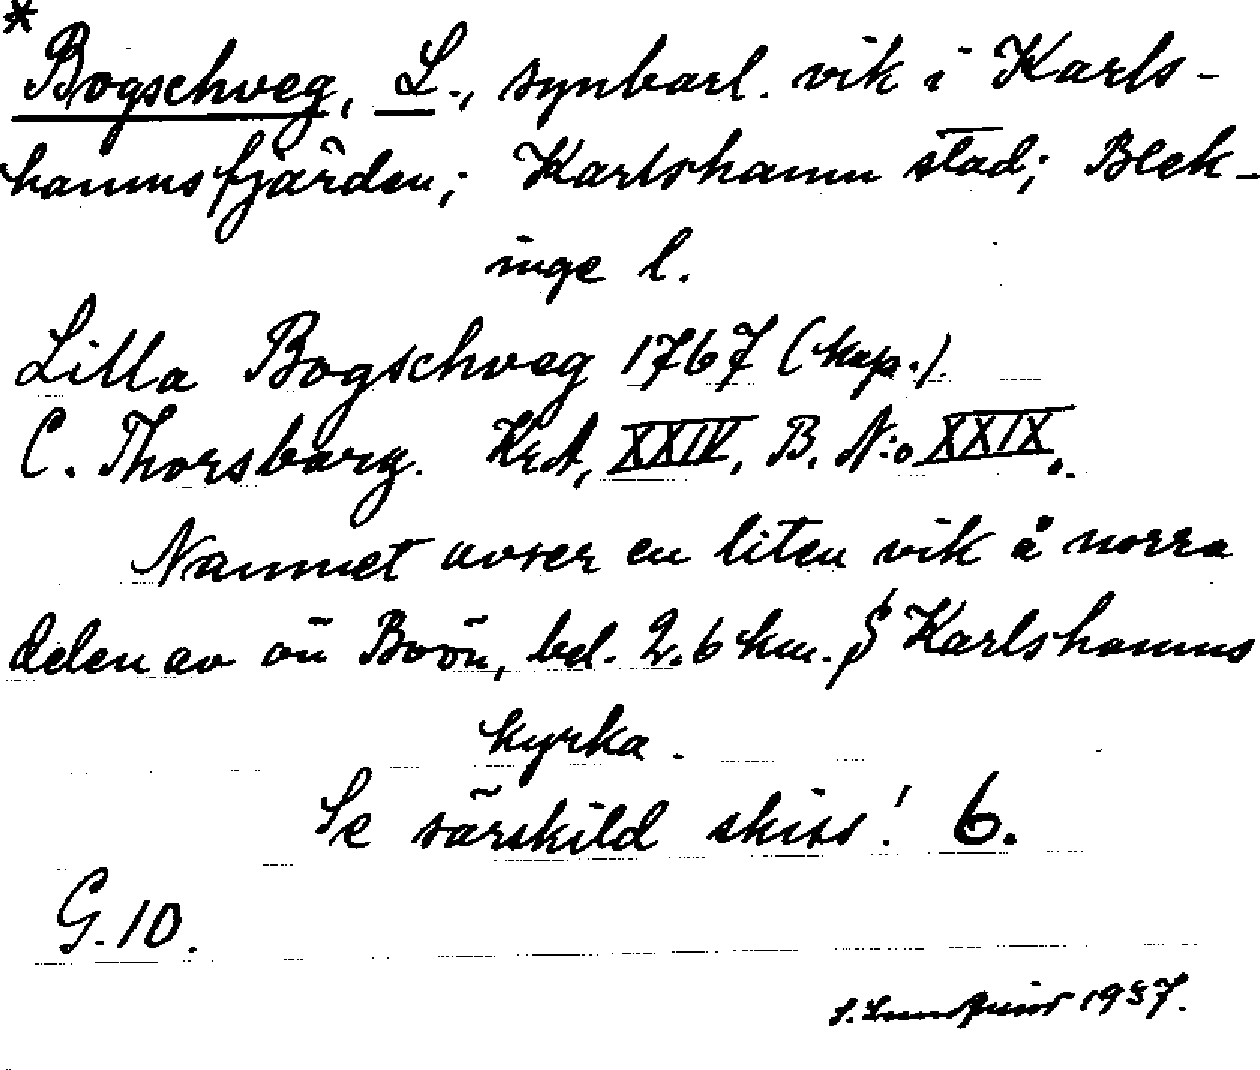 *
Bogschveg, L., synbarl. vik i Karls-
hamnsfjärden; Karlshamn stad; Blek-
inge l.
Lilla Bogschveg 1767 (kop.).
C. Thorsbarg. KrA, XXIV, B. N:o XXIX.
Namnet avser en liten vik å norra
delen av ön Boön, bel. 2.6 km. S Karlshamns
kyrka.
Se särskild skiss! 6.
G.10.
S. 1937.